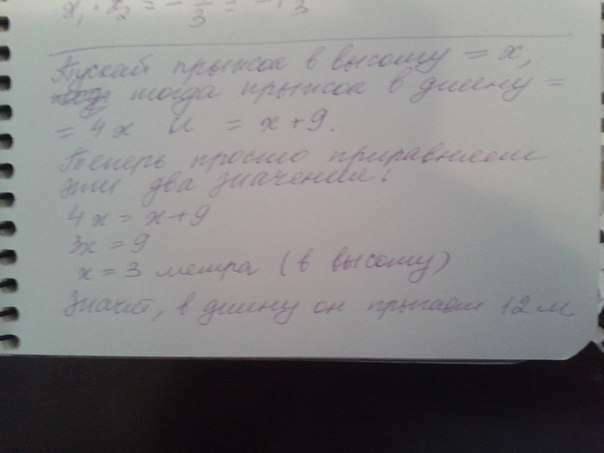 x₁ · x₂ = -
Пускай прыжок в высоту = x,
тогда прыжок в длину =
= 4x и = x+9.
Теперь просто приравняем
эти два значения:
4x = x+9
3x = 9
x = 3 метра (в высоту)
Значит, в длину он прыгает 12 м